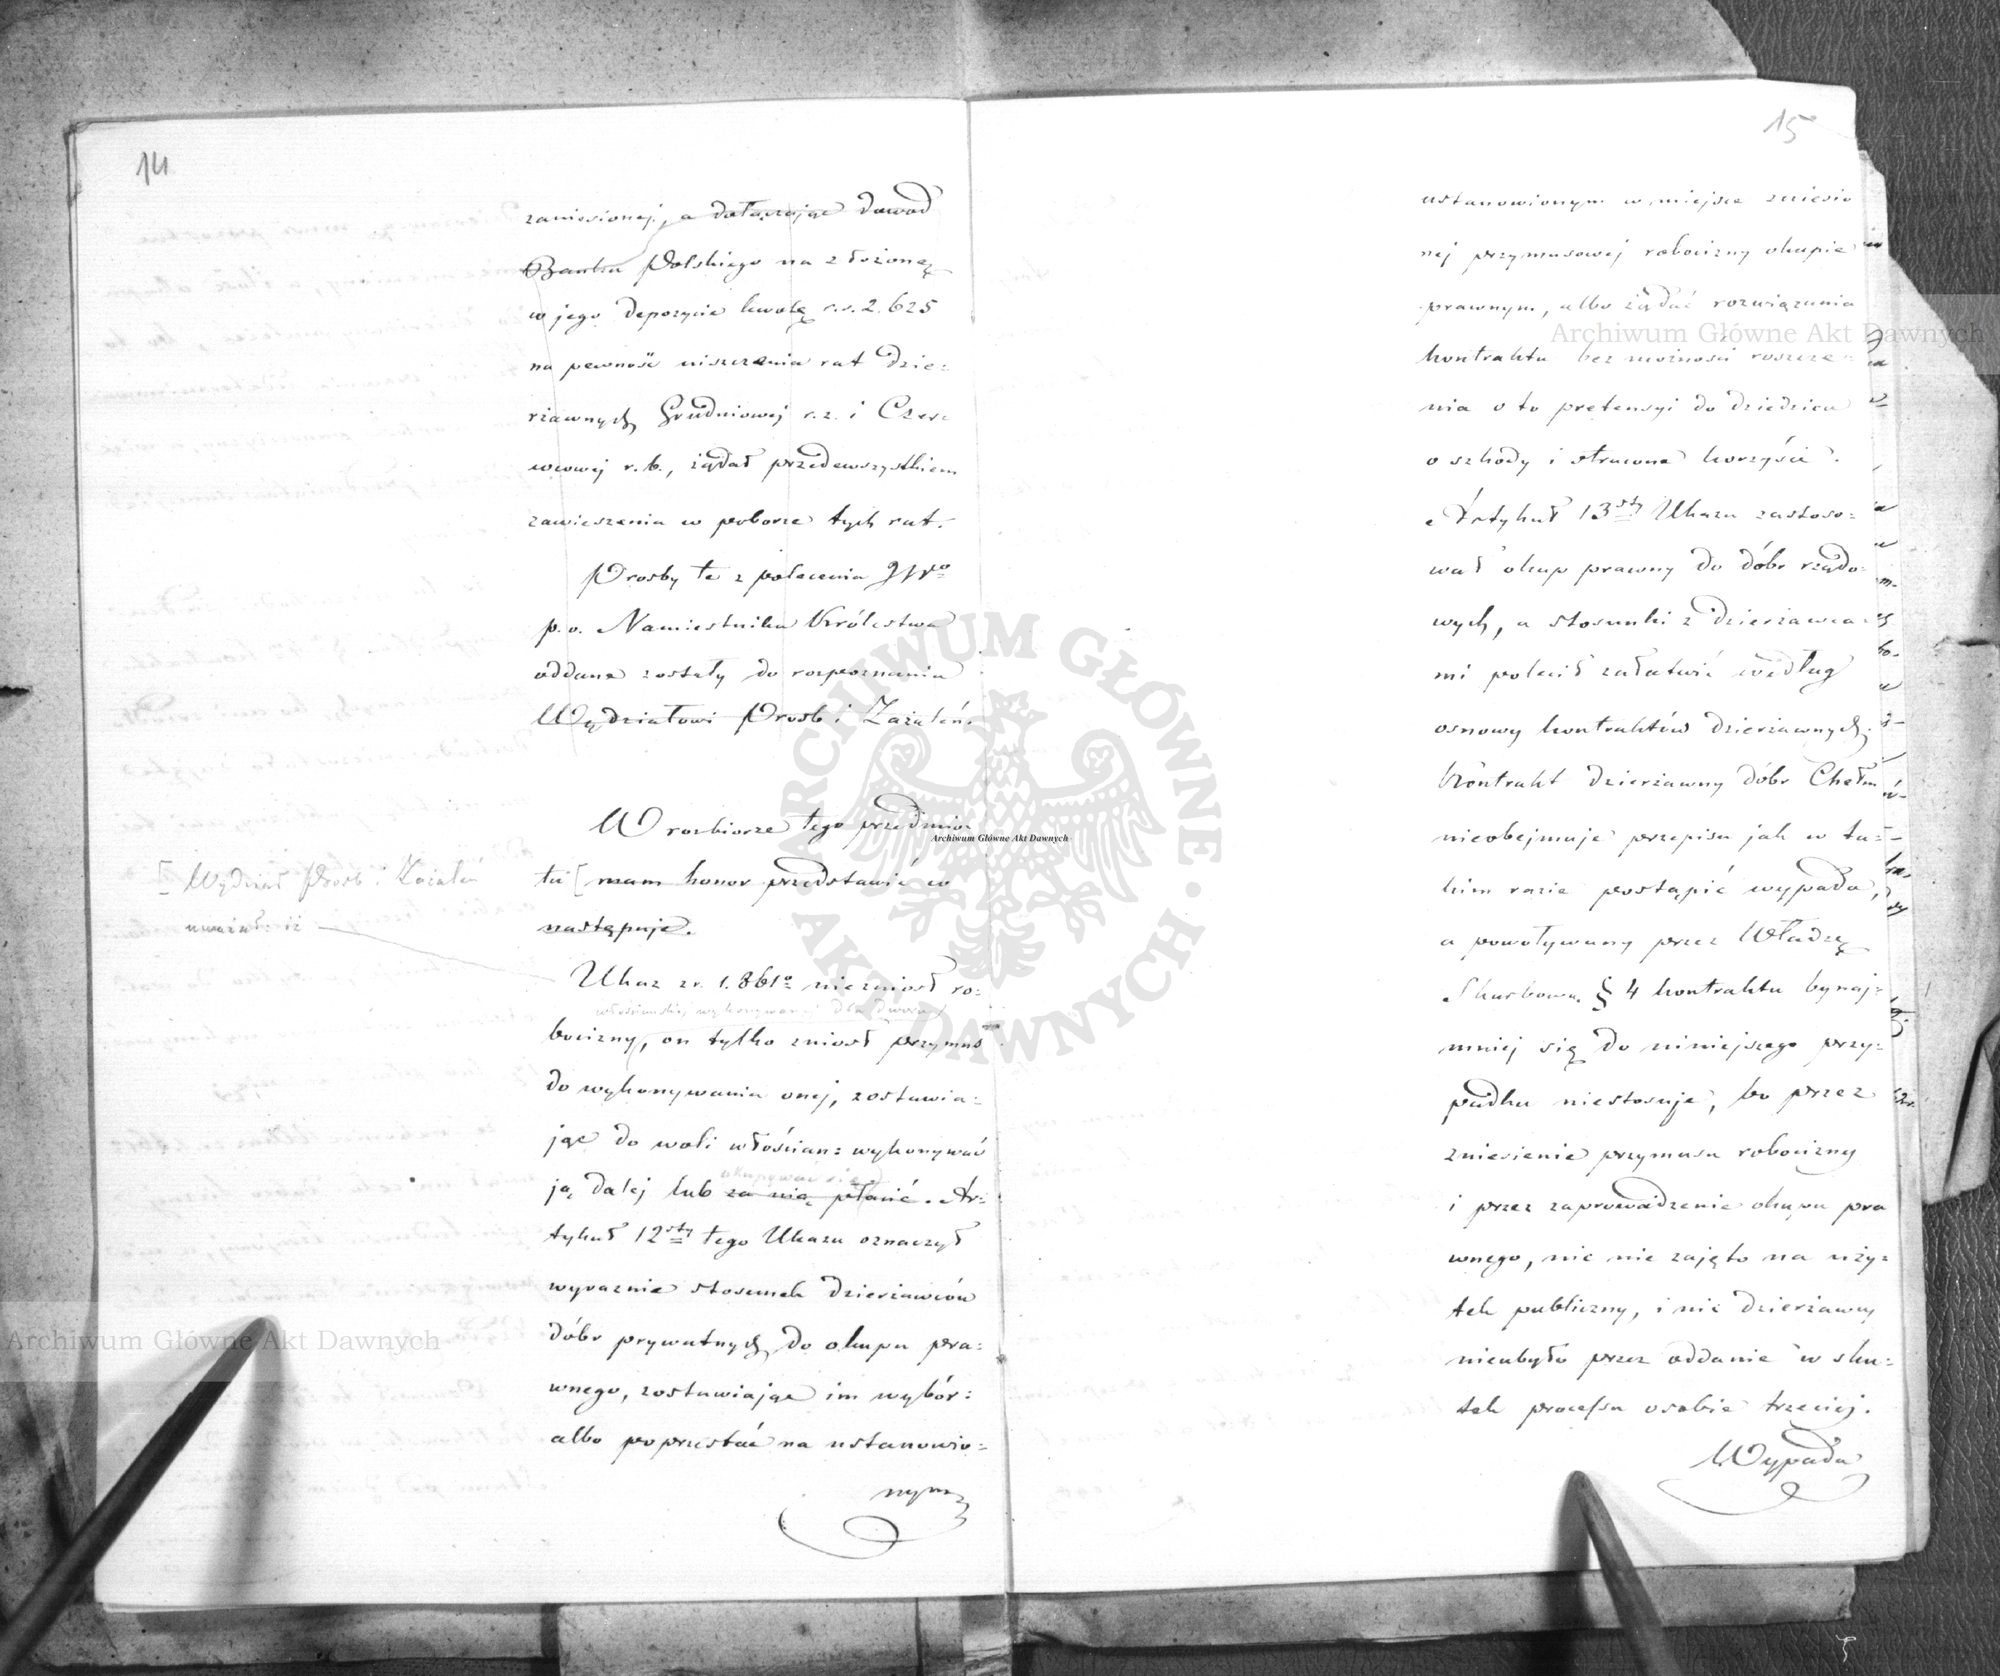 14
zaniesionej, a dołączając dowod
Banku Polskiego na złożoną
w jego depozycie kwotę r.s. 2.625
na pewność uiszczenia rat dzie=
rżawnych Grudniowej r.z. i Czer=
wcowej r.b., żądał przedewszystkiem
zawieszenia w poborze tych rat.
Prośby te z polecenia JW°
p.o. Namiestnika Królestwa
oddane zostały do rozpoznania
Wydziałowi Prośb i Zażaleń.
W rozbiorze tego przedmio=
tu [ mam honor przedstawić co
następuje.
[ Wydział Prośb i Zażaleń
uważał: iż
Ukaz z r. 1861° nie zniosł ro=
włościańskiej wykonywanej dla dworu
bocizny, on tylko zniosł przymus
do wykonywania onej, zostawia=
jąc do woli włościan: wykonywać
okupywać się
ją dalej lub za nią płacić. Ar=
tykuł 12sty tego Ukazu oznaczył
wyraznie stosunek dzierżawców
dóbr prywatnych do okupu pra=
wnego, zostawiając im wybór:
albo poprzestać na ustanowio=
nym
15
ustanowionym w miejsce zniesio
nej przymusowej robocizny okupie
prawnym, albo żądać rozwiązania
kontraktu bez możności roszcze=
nia o to pretensyi do dziedzica
o szkody i stracone korzyści.
Artykuł 13sty Ukazu zastoso=
wał okup prawny do dóbr rządo=
wych, a stosunki z dzierżawca=
mi polecił załatwić według
osnowy kontraktów dzierżawnych.
Kontrakt dzierżawny dóbr Chełm
nieobejmuje przepisu jak w ta=
kim razie postąpić wypada,
a powoływany przez Władzę
Skarbową § 4 kontraktu bynaj=
mniej się do niniejszego przy=
padku niestosuje, bo przez
zniesienie przymusu robocizny
i przez zaprowadzenie okupu pra
wnego, nic nie zajęto na uży=
tek publiczny, i nic dzierżawcy
nieubyło przez oddanie w sku=
tek processu osobie trzeciej.
Wypada
ARCHIWUM GŁÓWNE · AKT DAWNYCH ·
Archiwum Główne Akt Dawnych
Archiwum Główne Akt Dawnych
Archiwum Główne Akt Dawnych